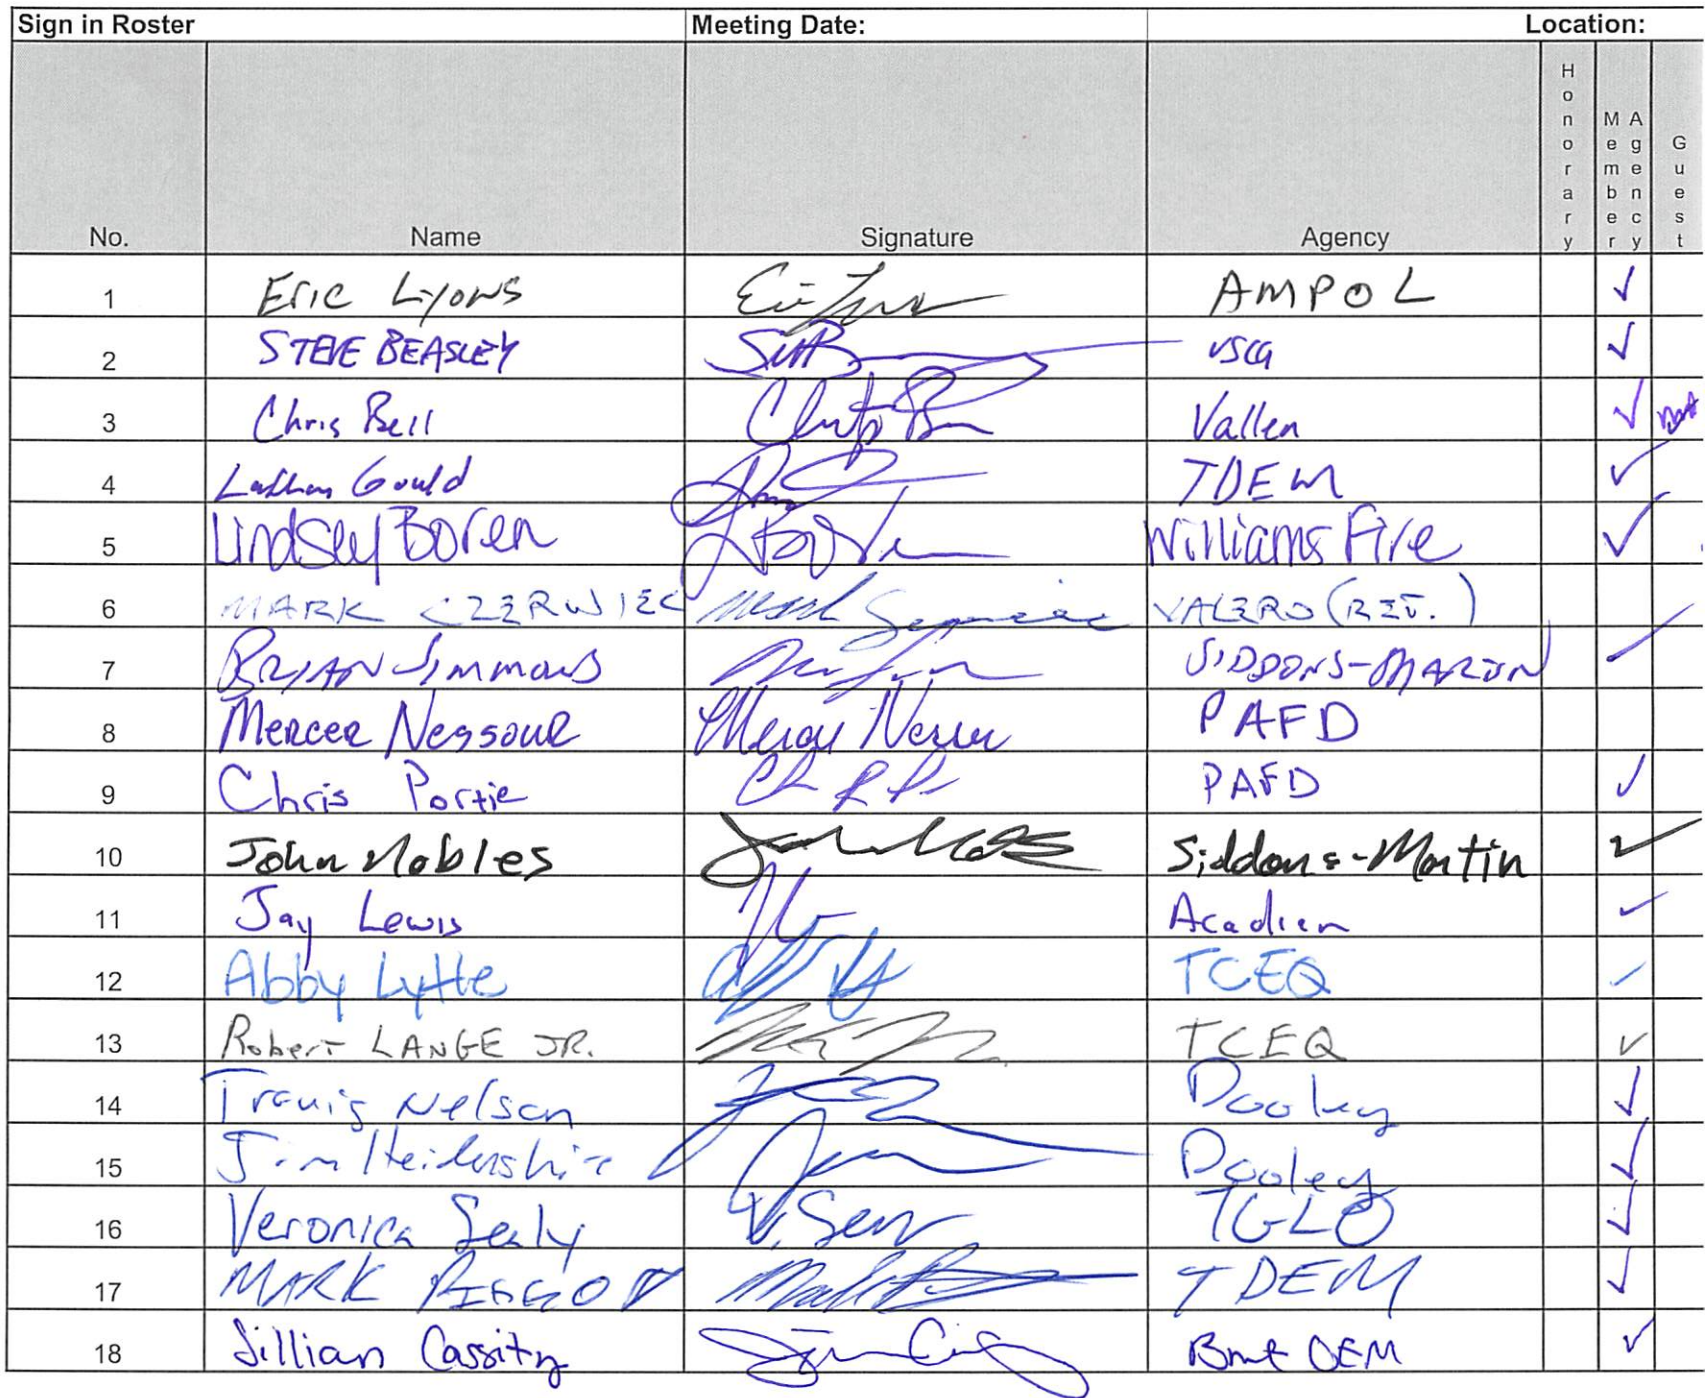 Sign in Roster Meeting Date: Location:
No. Name Signature Agency Honorary Member Agency Guest
1 Eric Lyons AMPOL ✓
2 STEVE BEASLEY USCG ✓
3 Chris Bell Vallen ✓
4 Gould TDEM ✓
5 Lindsey Boren Williams Fire ✓
6 MARK CZERWIEC VALERO (RET.)
7 BRIAN Simmons SIDDONS-MARTIN ✓
8 Mercer Nessour PAFD
9 Chris Portie PAFD ✓
10 John Nobles Siddons-Martin ✓
11 Jay Lewis Acadian ✓
12 Abby Lytle TCEQ ✓
13 Robert LANGE JR. TCEQ ✓
14 Travis Nelson Dooley ✓
15 Jim Dooley ✓
16 Veronica Sealy V. TGLO ✓
17 MARK TDEM ✓
18 Jillian Cassity Bmt OEM ✓